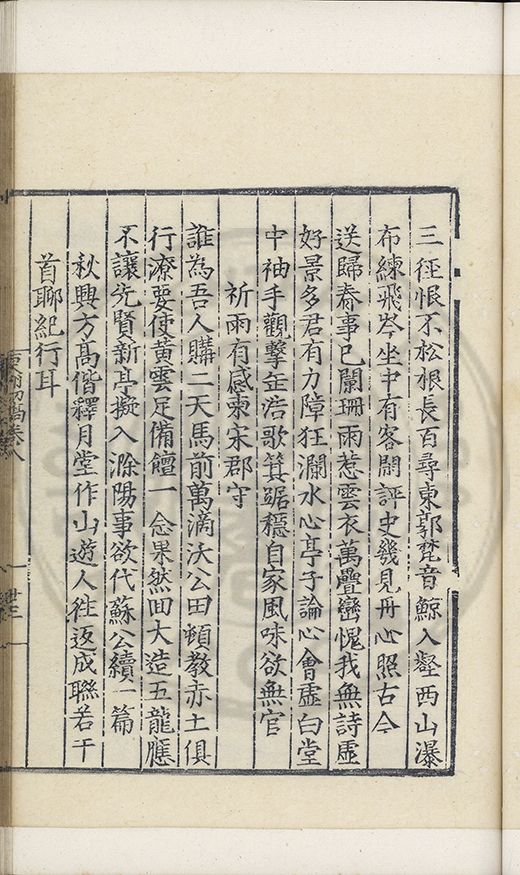 三徑恨不松根長百尋東郭梵音鯨入壑西山瀑
布練飛岑坐中有客閒評史幾見丹心照古今
送歸春事已闌珊雨惹雲衣萬疊巒愧我無詩虛
好景多君有力障狂瀾水心亭子論心會虛白堂
中袖手觀擊缶浩歌箕踞穩自家風味欲無官
祈雨有感柬宋郡守
誰為吾人購二天馬前萬滴沃公田頓教赤土俱
行潦要使黃雲足備饘一念果然回大造五龍應
不讓先賢新亭擬入滁陽事欲代蘇公續一篇
秋興方高偕釋月堂作山遊人往返成聯若干
首聊紀行耳
卷八
卅三